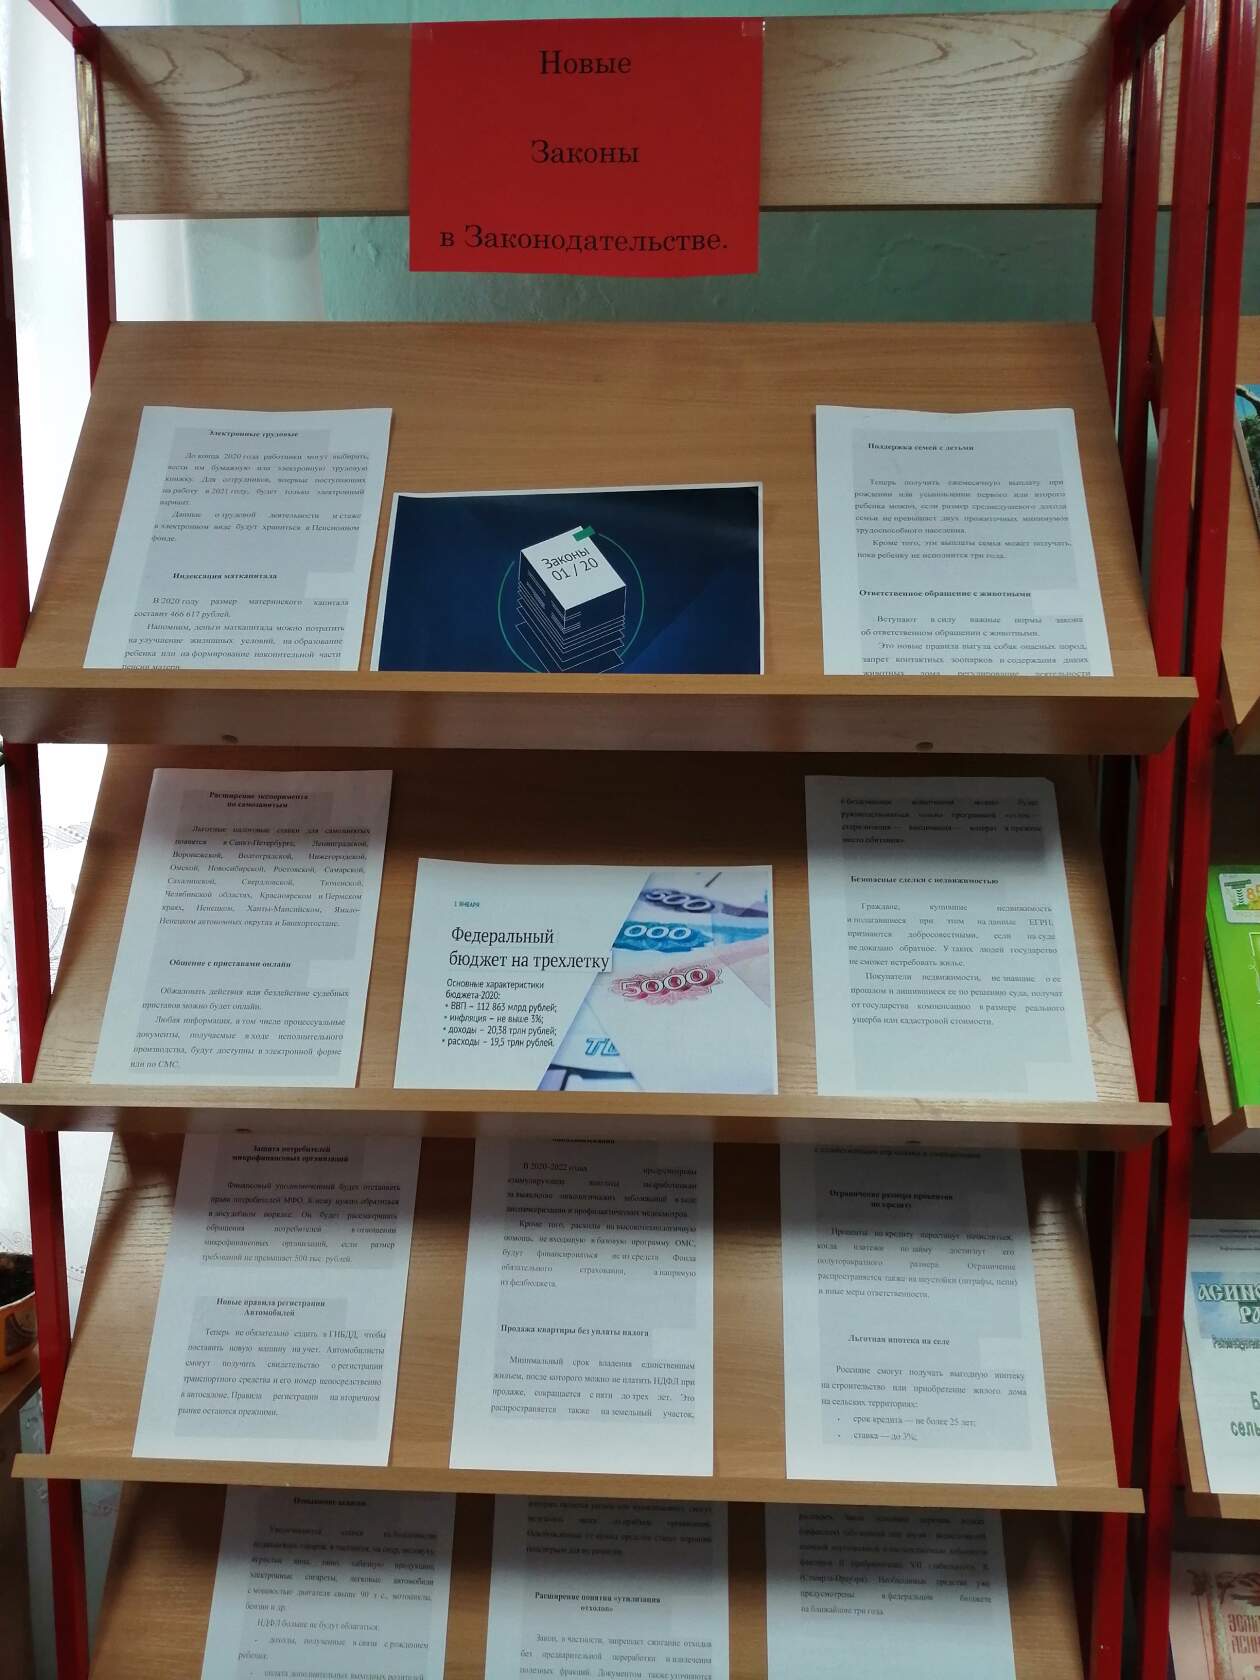 Новые
Законы
в Законодательстве.
Электронные трудовые
До конца 2020 года работники могут выбирать,
вести им бумажную или электронную трудовую
книжку. Для сотрудников, впервые поступающих
на работу в 2021 году, будет только электронный
вариант.
Данные о трудовой деятельности и стаже
в электронном виде будут храниться в Пенсионном
фонде.
Индексация маткапитала
В 2020 году размер материнского капитала
составит 466 617 рублей.
Напомним, деньги маткапитала можно потратить
на улучшение жилищных условий, на образование
ребенка или на формирование накопительной части
пенсии матери.
Законы
01 / 20
Поддержка семей с детьми
Теперь получить ежемесячную выплату при
рождении или усыновлении первого или второго
ребенка можно, если размер среднедушевого дохода
семьи не превышает двух прожиточных минимумов
трудоспособного населения.
Кроме того, эти выплаты семья может получать,
пока ребенку не исполнится три года.
Ответственное обращение с животными
Вступают в силу важные нормы закона
об ответственном обращении с животными.
Это новые правила выгула собак опасных пород,
запрет контактных зоопарков и содержания диких
животных дома, регулирование деятельности
Расширение эксперимента
по самозанятым
Льготные налоговые ставки для самозанятых
появятся в Санкт-Петербурге, Ленинградской,
Воронежской, Волгоградской, Нижегородской,
Омской, Новосибирской, Ростовской, Самарской,
Сахалинской, Свердловской, Тюменской,
Челябинской областях, Красноярском и Пермском
краях, Ненецком, Ханты-Мансийском, Ямало-
Ненецком автономных округах и Башкортостане.
Общение с приставами онлайн
Обжаловать действия или бездействие судебных
приставов можно будет онлайн.
Любая информация, в том числе процессуальные
документы, получаемые в ходе исполнительного
производства, будут доступны в электронной форме
или по СМС.
1 ЯНВАРЯ
Федеральный
бюджет на трехлетку
Основные характеристики
бюджета-2020:
• ВВП – 112 863 млрд рублей;
• инфляция – не выше 3%;
• доходы – 20,38 трлн рублей;
• расходы – 19,5 трлн рублей.
500
000
5000
с бездомными животными можно будет
руководствоваться только программой «отлов—
стерилизация — вакцинация — возврат в прежнее
место обитания».
Безопасные сделки с недвижимостью
Граждане, купившие недвижимость
и полагавшиеся при этом на данные ЕГРН,
признаются добросовестными, если на суде
не доказано обратное. У таких людей государство
не сможет истребовать жилье.
Покупатели недвижимости, не знавшие о ее
прошлом и лишившиеся ее по решению суда, получат
от государства компенсацию в размере реального
ущерба или кадастровой стоимости.
Защита потребителей
микрофинансовых организаций
Финансовый уполномоченный будет отстаивать
права потребителей МФО. К нему нужно обратиться
в досудебном порядке. Он будет рассматривать
обращения потребителей в отношении
микрофинансовых организаций, если размер
требований не превышает 500 тыс. рублей.
Новые правила регистрации
Автомобилей
Теперь не обязательно ездить в ГИБДД, чтобы
поставить новую машину на учет. Автомобилисты
смогут получить свидетельство о регистрации
транспортного средства и его номер непосредственно
в автосалоне. Правила регистрации на вторичном
рынке остаются прежними.
В 2020-2022 годах предусмотрены
стимулирующие выплаты медработникам
за выявление онкологических заболеваний в ходе
диспансеризации и профилактических медосмотров.
Кроме того, расходы на высокотехнологичную
помощь, не входящую в базовую программу ОМС,
будут финансироваться не из средств Фонда
обязательного страхования, а напрямую
из федбюджета.
Продажа квартиры без уплаты налога
Минимальный срок владения единственным
жильем, после которого можно не платить НДФЛ при
продаже, сокращается с пяти до трех лет. Это
распространяется также на земельный участок,
Ограничение размера процентов
по кредиту
Проценты по кредиту перестанут начисляться,
когда платежи по займу достигнут его
полуторакратного размера. Ограничение
распространяется также на неустойки (штрафы, пени)
и иные меры ответственности.
Льготная ипотека на селе
Россияне смогут получать выгодную ипотеку
на строительство или приобретение жилого дома
на сельских территориях:
• срок кредита — не более 25 лет;
• ставка — до 3%;
Повышение акцизов
Увеличиваются
электронные сигареты, легковые автомобили
с мощностью двигателя свыше 90 л.с., мотоциклы,
бензин и др.
НДФЛ больше не будут облагаться:
- доходы, полученные в связи с рождением
ребенка;
- оплата дополнительных выходных родителей
Расширение понятия «утилизация
отходов»
Закон, в частности, запрещает сжигание отходов
без предварительной переработки и извлечения
полезных фракций. Документом также уточняются
Необходимые средства уже
предусмотрены в федеральном бюджете
на ближайшие три года.